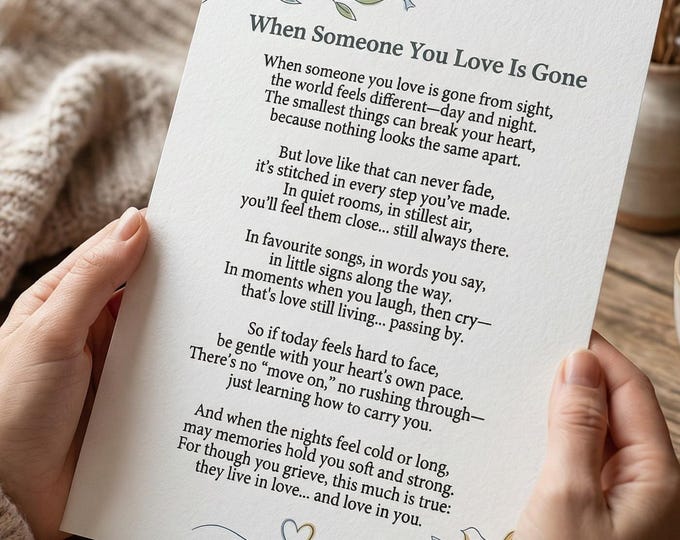 When Someone You Love Is Gone
When someone you love is gone from sight,
the world feels different—day and night.
The smallest things can break your heart,
because nothing looks the same apart.
But love like that can never fade,
it's stitched in every step you've made.
In quiet rooms, in stillest air,
you'll feel them close... still always there.
In favourite songs, in words you say,
in little signs along the way.
In moments when you laugh, then cry—
that's love still living... passing by.
So if today feels hard to face,
be gentle with your heart's own pace.
There's no “move on,” no rushing through—
just learning how to carry you.
And when the nights feel cold or long,
may memories hold you soft and strong.
For though you grieve, this much is true:
they live in love... and love in you.